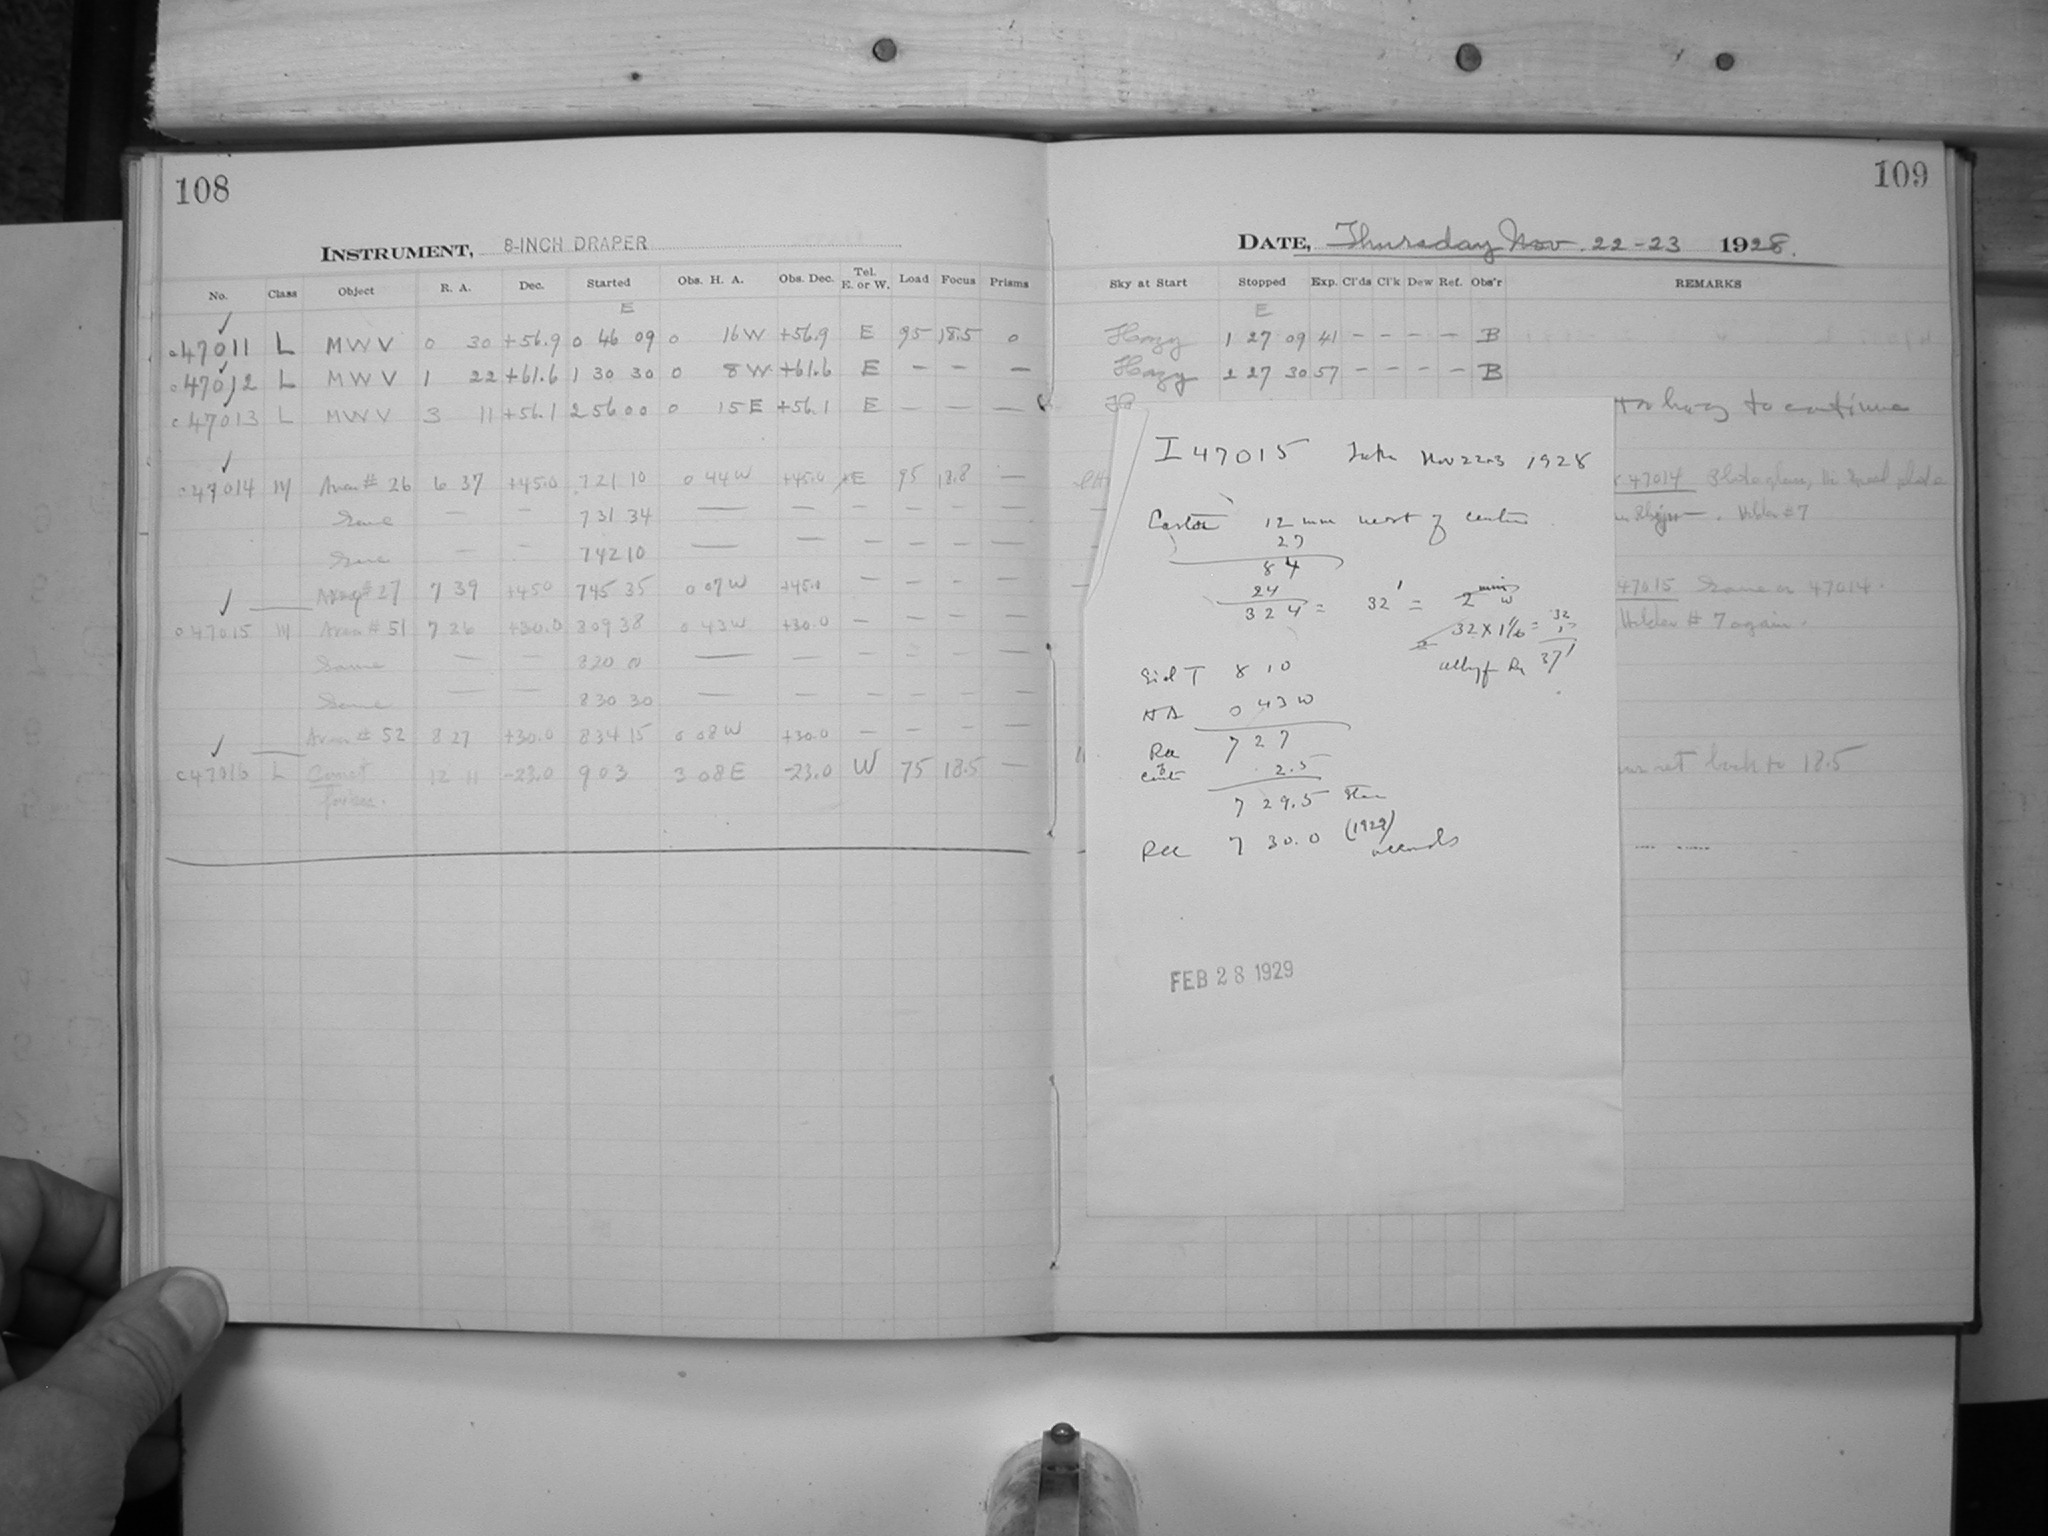 108
INSTRUMENT, 8-INCH DRAPER
No. Class Object R. A. Dec. Started Obs. H. A. Obs. Dec. Tel. E. or W. Load Focus Prisms
E
47011 L MWV 0 30 +56.9 0 46 09 0 16 W +56.9 E 95 18.5 0
47012 L MWV 1 22 +61.6 1 30 30 0 8 W +61.6 E — — —
47013 L MWV 3 11 +56.1 2 56 00 0 15 E +56.1 E — — —
47014 M # 26 6 37 +45.0 7 21 10 0 44 W +45.0 E 95 18.8 —
Same — — 7 31 34 — — — — — —
Same — — 7 42 10 — — — — — —
#27 7 39 +45.0 7 45 35 0 07 W +45.0 — — — —
47015 M # 51 7 26 +30.0 8 09 38 0 43 W +30.0 — — — —
Same — — 8 20 0 — — — — — —
Same — — 8 30 30 — — — — — —
# 52 8 27 +30.0 8 34 15 0 08 W +30.0 — — — —
47016 L Comet 12 11 -23.0 9 03 3 08 E -23.0 W 75 18.5 —
Forbes.
109
DATE, Thursday Nov. 22-23 1928.
Sky at Start Stopped Exp. Cl'ds Cl'k Dew Ref. Obs'r REMARKS
E
Hazy 1 27 09 41 — — — — B
Hazy 2 27 30 57 — — — — B
hazy to continue
47014
Holder #7
47015 Same as 47014.
Holder # 7 again.
set back to 18.5
I 47015 Nov 22-23 1928
Castor 12 mm west of centre
27
84
24
324 = 32' = 2 min W
32 X 1 1/6 = 32
37'
Sid T 8 10
HA 0 43 W
RA 7 27
centre 2.5
7 29.5 Star
RA 7 30.0 (1929)
accords
FEB 28 1929